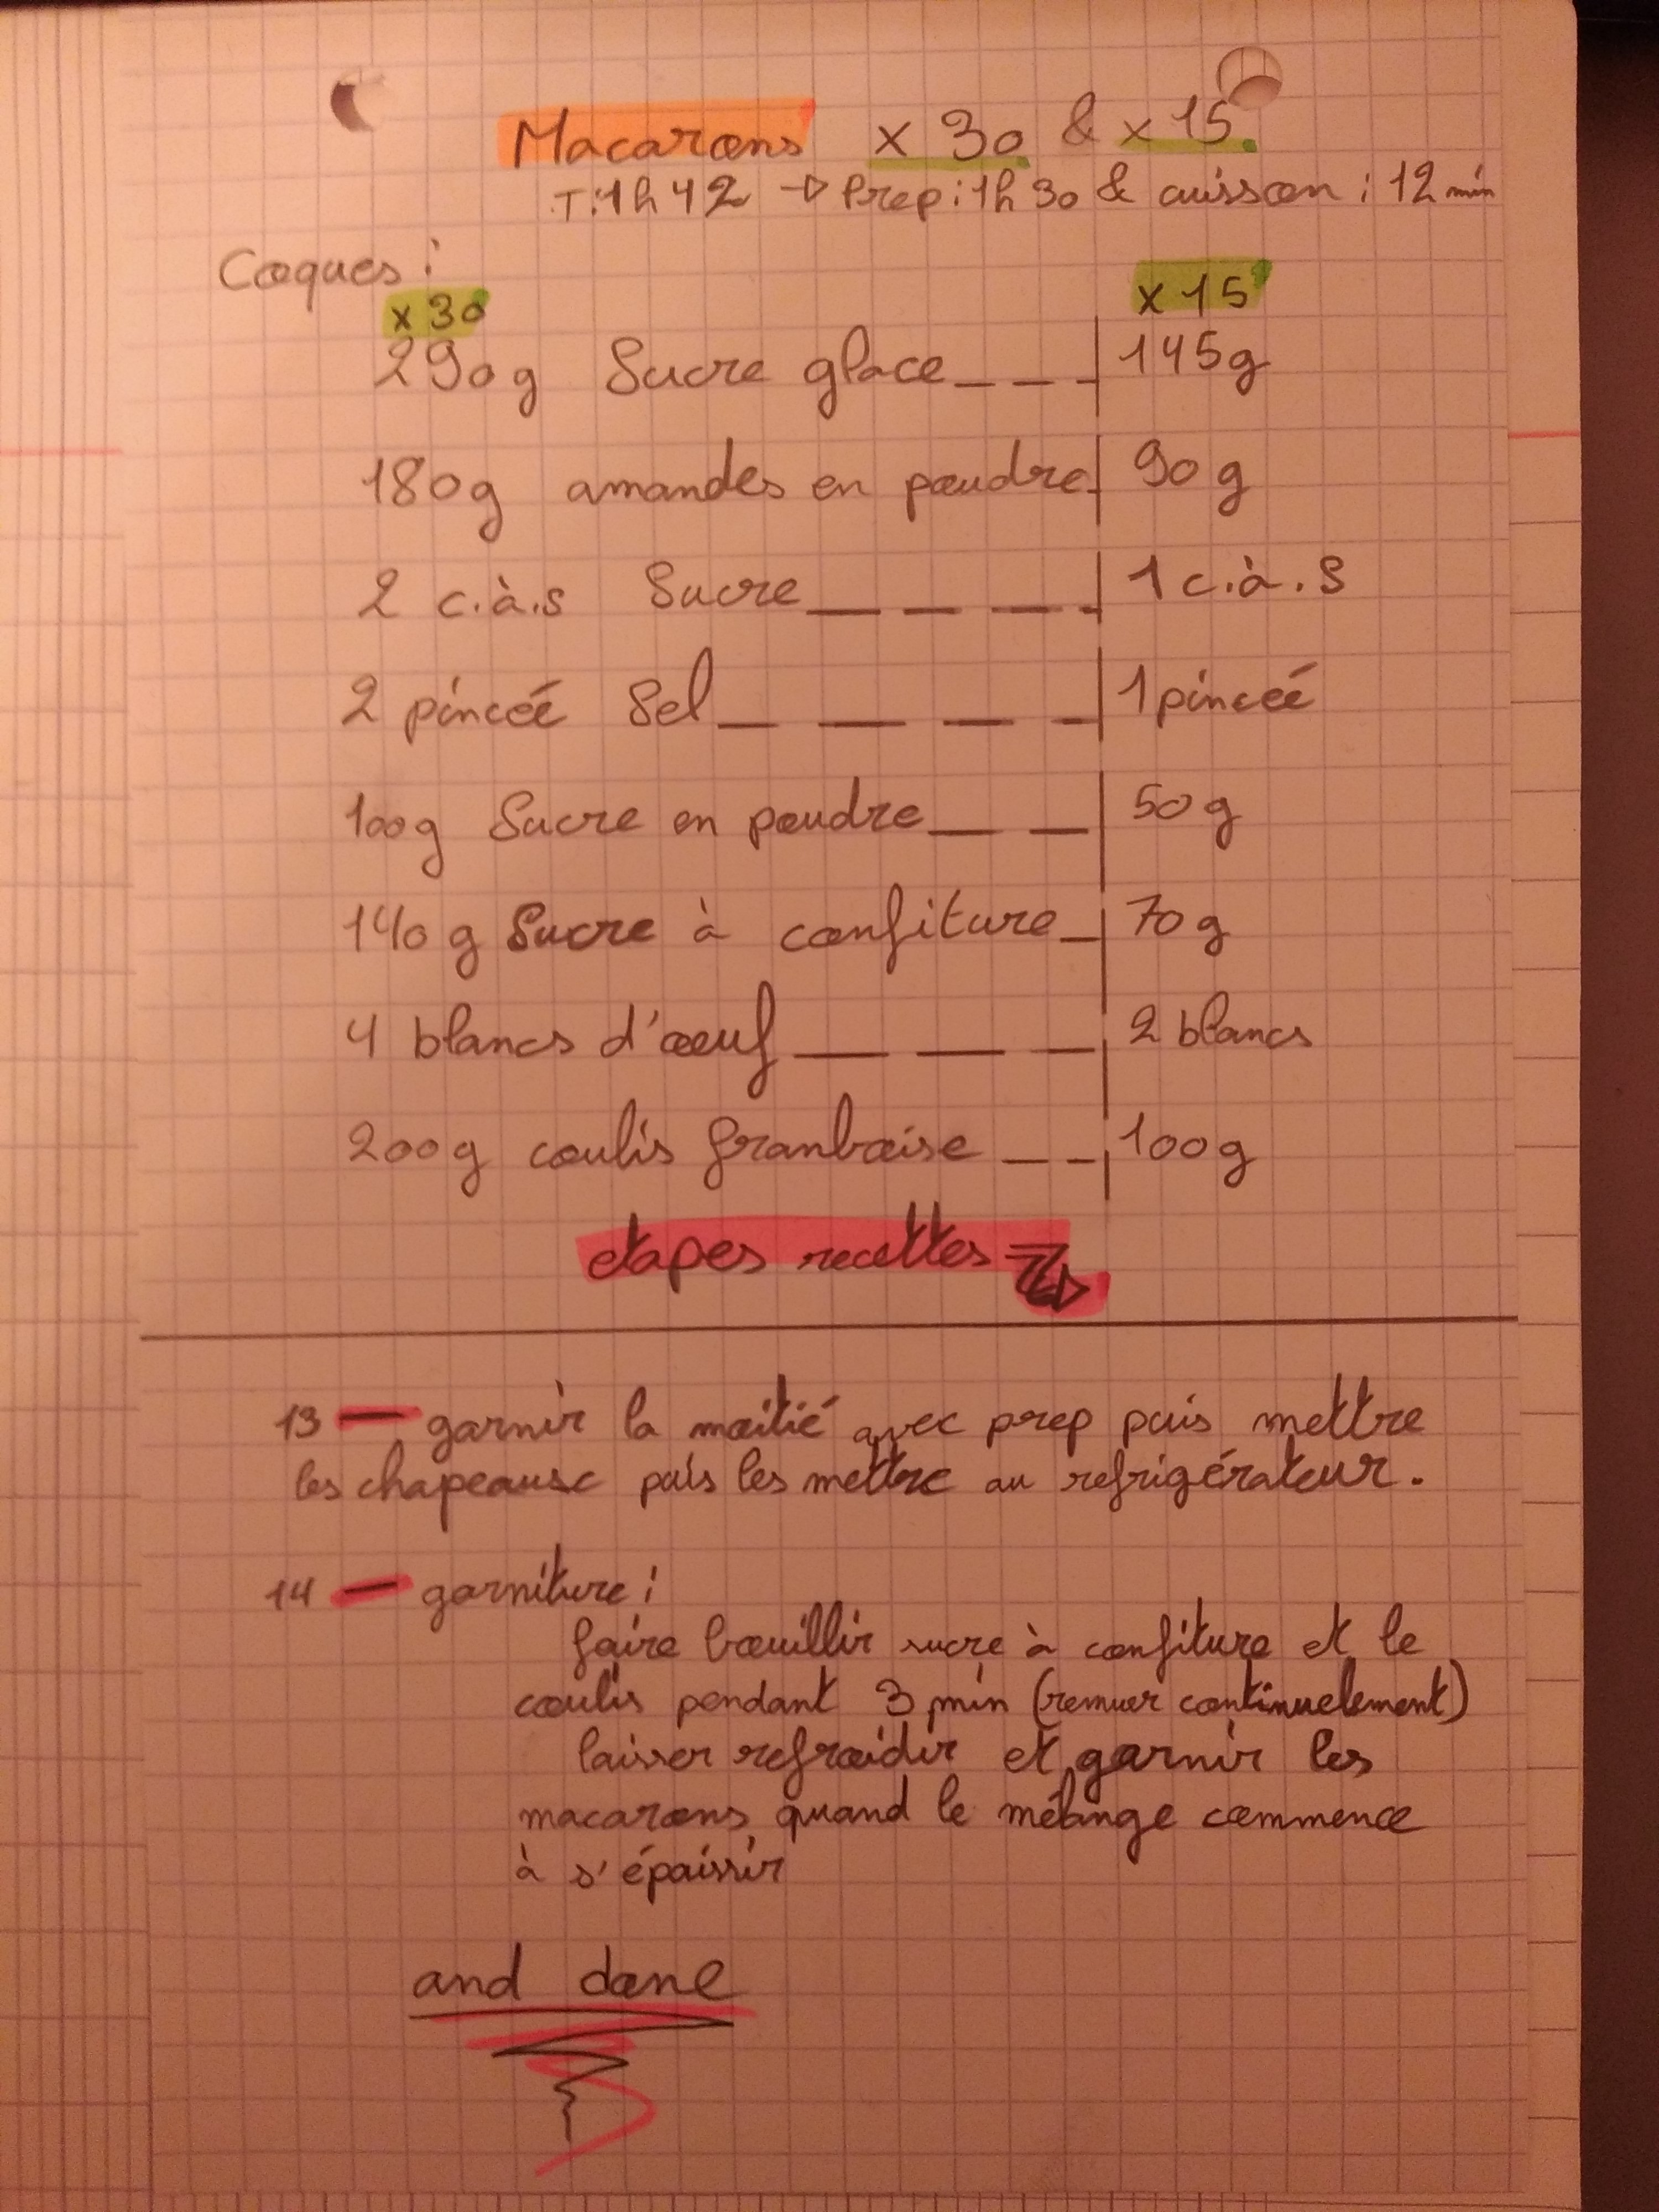 Macarons x 30 & x 15
T:1h42 → Prep:1h30 & cuisson : 12 min
Coques :
x 30 x 15
290g Sucre glace 145g
180g amandes en poudre 90g
2 c.à.s Sucre 1 c.à.s
2 pinceé Sel 1 pinceé
100g Sucre en poudre 50g
140g Sucre à confiture 70g
4 blancs d'oeuf 2 blancs
200g coulis franboise 100g
etapes recettes
13 — garnir la moitié avec prep puis mettre
les chapeaux puis les mettre au refrigérateur.
14 — garniture :
faire bouillir sucre à confiture et le
coulis pendant 3 min (remuer continuelement)
laisser refroidir et garnir les
macarons quand le mélange commence
à s'épaissir
and done